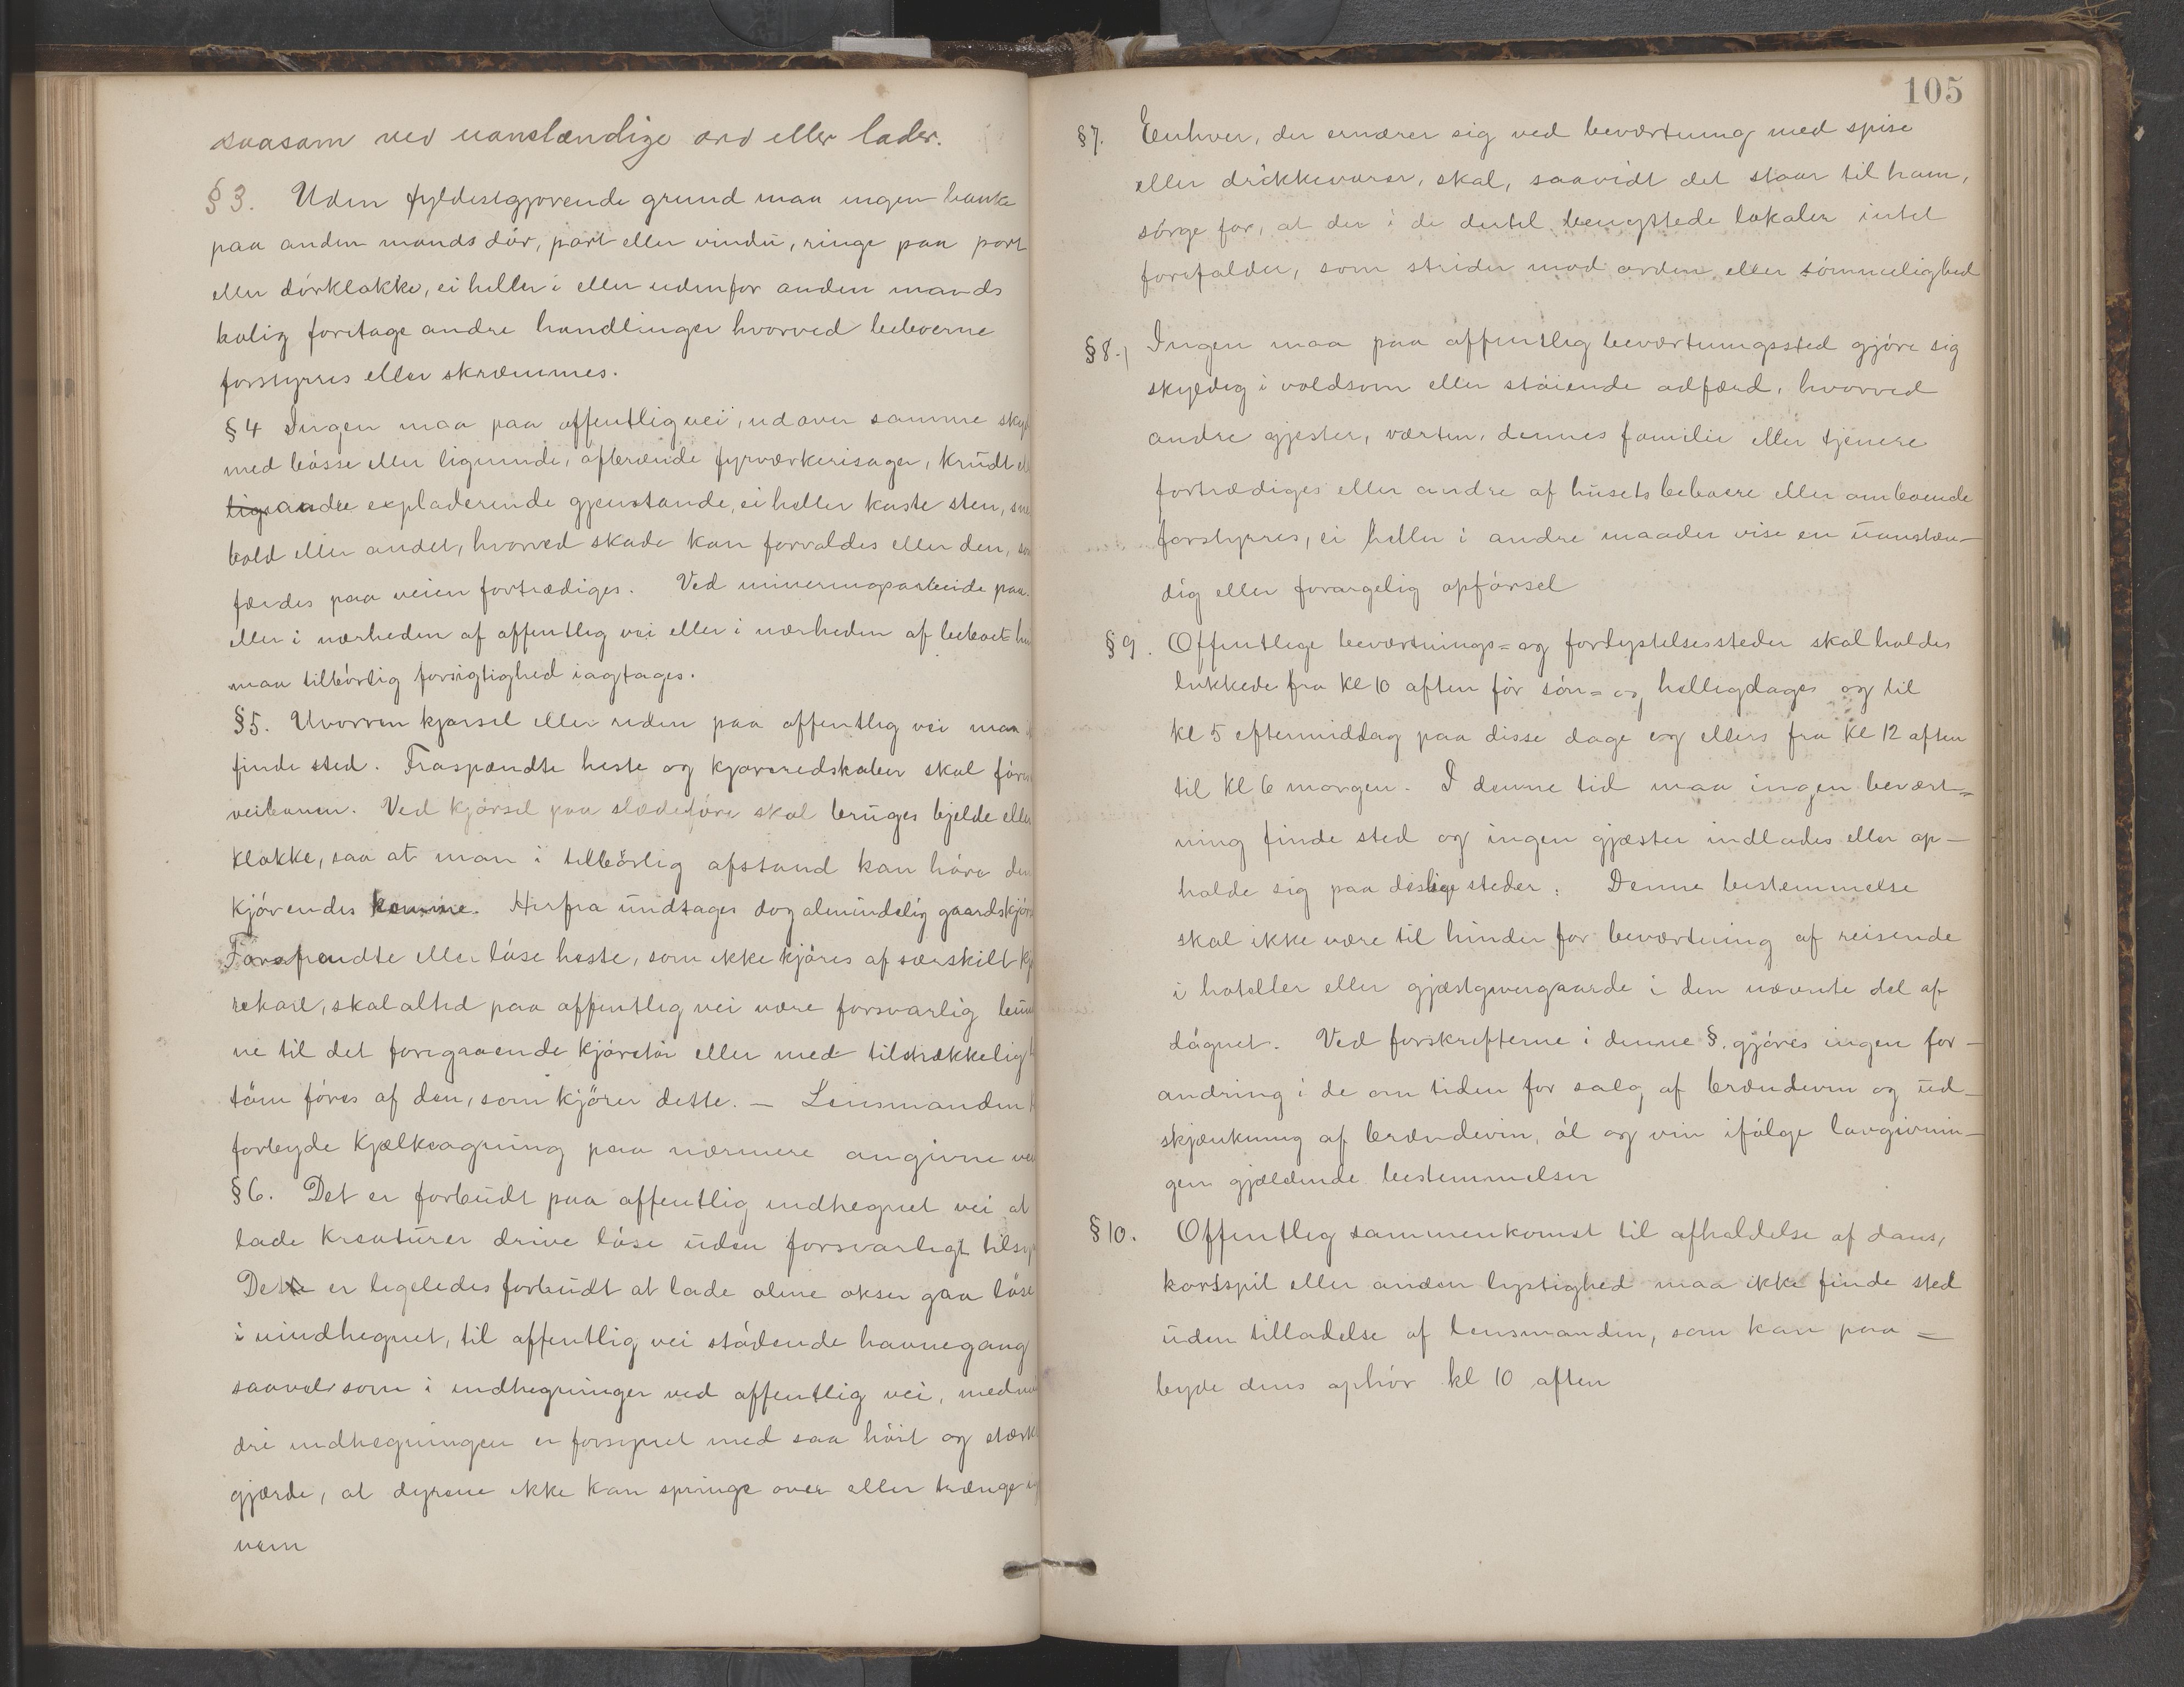 saasom ved uanstændige ord eller lader.
§ 3. Uden fyldestgjørende grund maa ingen banke
paa anden mands dør, port eller vindu, ringe paa port
eller dørklokke, ei heller i eller udenfor anden mands
bolig foretage andre handlinger hvorved beboerne
forstyrres eller skræmmes.
§ 4 Ingen maa paa offentlig vei, ud over samme
med bösse eller lignende, afbrænde fyrværkerisager, krudt
lign andre exploderende gjenstande, ei heller kaste sten,
bold eller andet, hvorved skade kan forvoldes eller den,
færdes paa veien fortrædiges. Ved mineringsarbeide paa
eller i nærheden af offentlig vei eller i nærheden af beboet
maa tilbørlig forsigtighed iagtages.
§ 5. Uvorren kjørsel eller riden paa offentlig vei maa
finde sted. Fraspændte heste og kjøreredskaber skal
veibanen. Ved kjørsel paa slædeføre skal bruges bjelde eller
klokke, saa at man i tilbørlig afstand kan høre den
kjørendes komme. Herfra undtages dog almindelig
Foraspændte eller løse heste, som ikke kjøres af særskilt
rekarl, skal altid paa offentlig vei være forsvarlig
ne til det foregaaende kjøretøi eller med tilstrækkelig
töm føres af den, som kjører dette. — Lensmanden
forbyde kjælkeagning paa nærmere angivne
§ 6. Det er forbudt paa offentlig indhegnet vei at
lade kreaturer drive løse uden forsvarligt
Dette er ligeledes forbudt at lade olme okser gaa løse
i uindhegnet, til offentlig vei stødende havnegang
saavelsom i indhegninger ved offentlig vei,
dre indhegningen er forsynet med saa høit og
gjærde, at dyrene ikke kan springe over eller trænge
nem
105
§ 7. Enhver, der ernærer sig ved beværtning med spise
eller drikkevarer, skal, saavidt det staar til ham,
sørge for, at der i de dertil benyttede lokaler intet
forefalder, som strider mod orden eller sømmelighed
§ 8., Ingen maa paa offentlig beværtningssted gjøre sig
skyldig i voldsom eller støiende adfærd, hvorved
andre gjester, værten, dennes familie eller tjenere
fortrædiges eller andre af husets beboere eller omboende
forstyrres, ei heller i andre maader vise en uanstæn-
dig eller forargelig opførsel
§ 9. Offentlige beværtnings= og forlystelsessteder skal holdes
lukkede fra kl 10 aften før søn= og helligdage og til
kl 5 eftermiddag paa disse dage og ellers fra kl 12 aften
til kl 6 morgen. I denne tid maa ingen bevært=
ning finde sted og ingen gjæster indlades eller op-
holde sig paa deslige steder. Denne bestemmelse
skal ikke være til hinder for beværtning af reisende
i hoteller eller gjæstgivergaarde i den nævnte del af
døgnet. Ved forskrifterne i denne §. gjøres ingen for-
andring i de om tiden for salg af brændevin og ud-
skjænkning af brændevin, öl og vin ifølge lovgivnin-
gen gjældende bestemmelser
§ 10. Offentlig sammenkomst til afholdelse af dans,
kortspil eller anden lystighed maa ikke finde sted
uden tilladelse af lensmanden, som kan paa=
byde dens ophør kl 10 aften